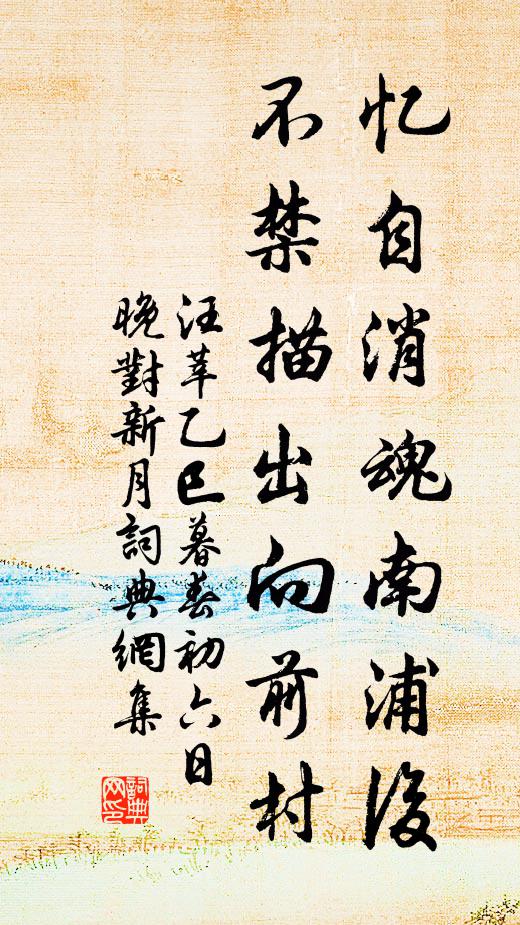 忆自消魂南浦後
不禁描出向前村
汪莘乙巳暮春初六日
晚對新月詞典網集
詞典
网印